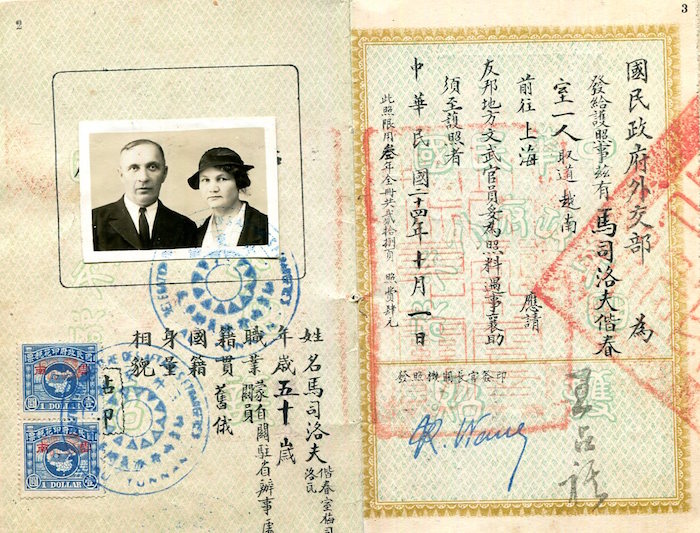 2
姓名馬司洛夫
偕春室梅司
洛氏
年歲五十歲
職業蒙自關駐省辦事處
關員
籍貫舊俄
國籍
身量
相貌
1 DOLLAR
1 DOLLAR
YUNNAN
3
國民政府外交部 為
發給護照事茲有馬司洛夫偕春
室一人取道越南
前往上海 應請
友邦地方文武官員妥為照料遇事襄助
須至護照者
中華民國二十四年十月一日
此照限用叁年全冊共貳拾捌頁 照費肆元
發照機關長官簽印
王占祺